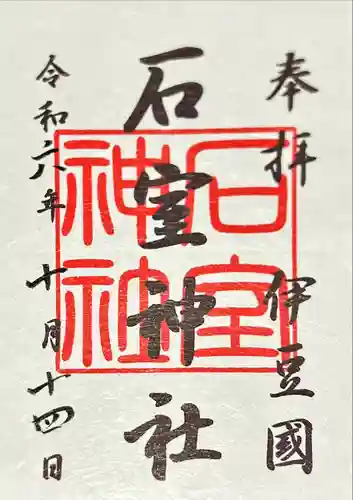 奉拝 伊豆國
石室神社
令和六年 十月十四日
石室
神社